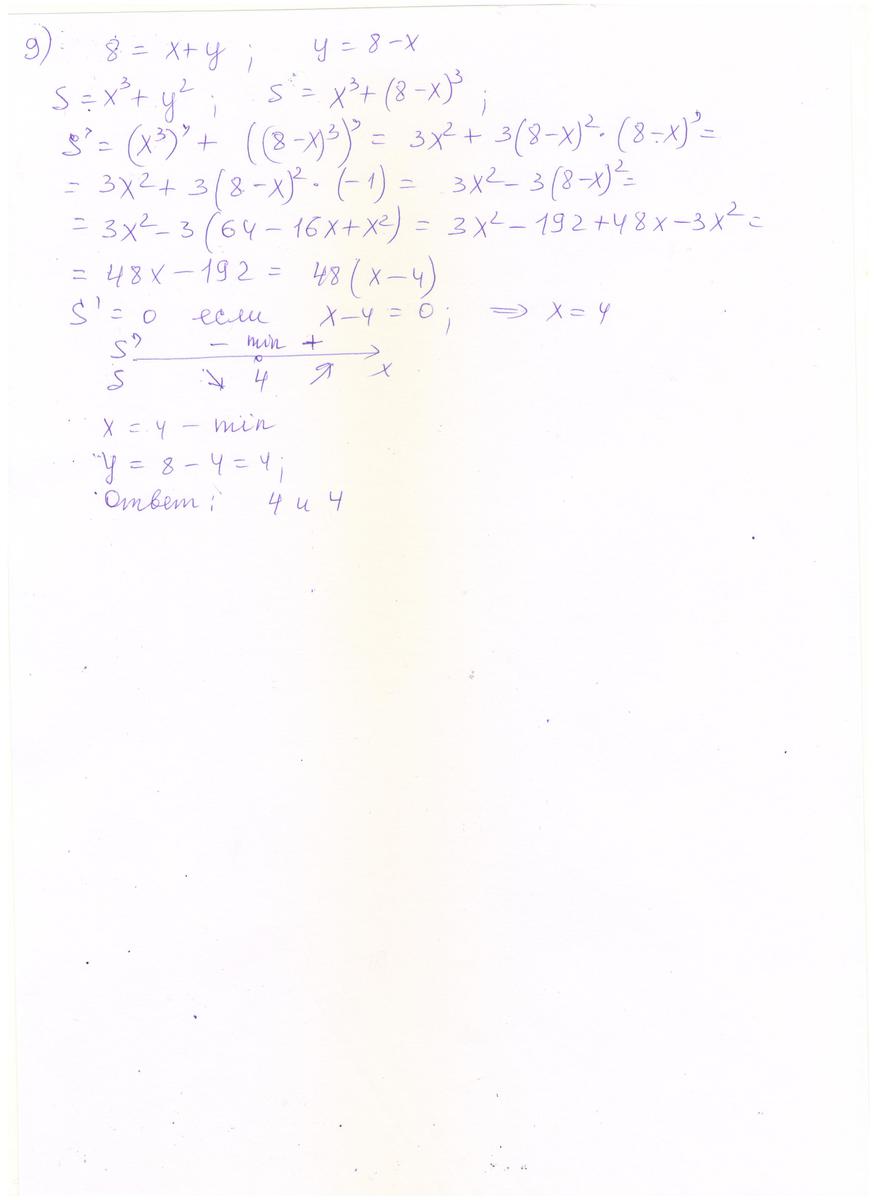 9) 8 = x+y ; y = 8-x
S = x³ + y² ; S = x³ + (8-x)³ ;
S' = (x³)' + ((8-x)³)' = 3x² + 3(8-x)² · (8-x)' =
= 3x² + 3(8-x)² · (-1) = 3x² - 3(8-x)² =
= 3x² - 3(64 - 16x + x²) = 3x² - 192 + 48x - 3x² =
= 48x - 192 = 48(x-4)
S' = 0 если x-4 = 0 ; ⇒ x = 4
S' - min +
S ↘ 4 ↗ x
x = 4 - min
y = 8 - 4 = 4;
Ответ: 4 и 4